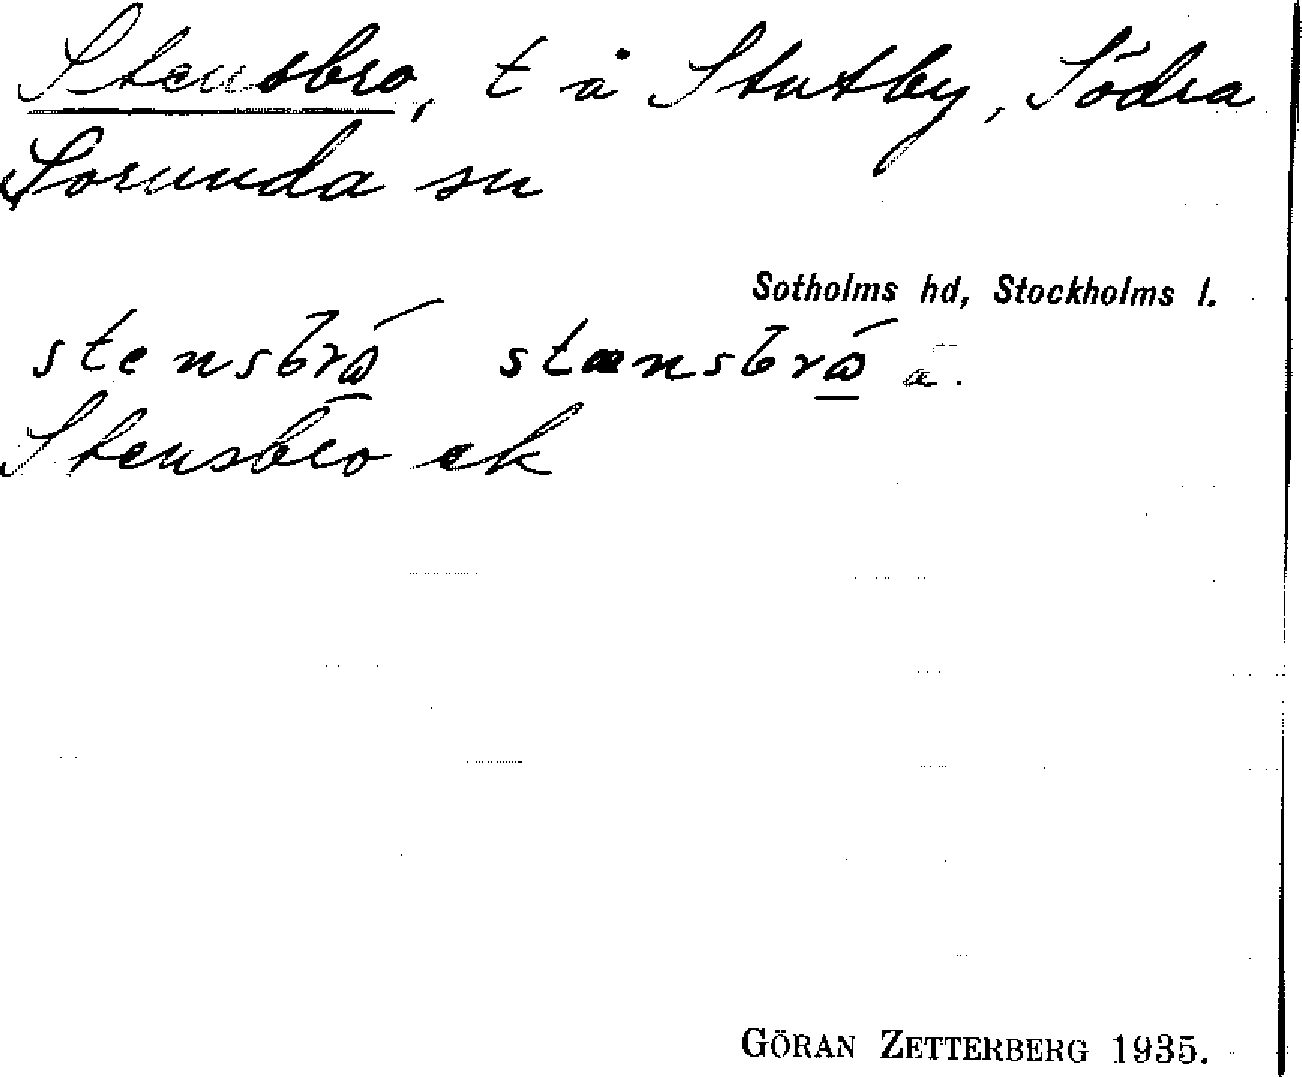 Stensbro, t å Stutby, Södra
Sorunda sn
Sotholms hd, Stockholms l.
stensbrå stænsbrå ä.
Stensbro ek
GÖRAN ZETTERBERG 1935.